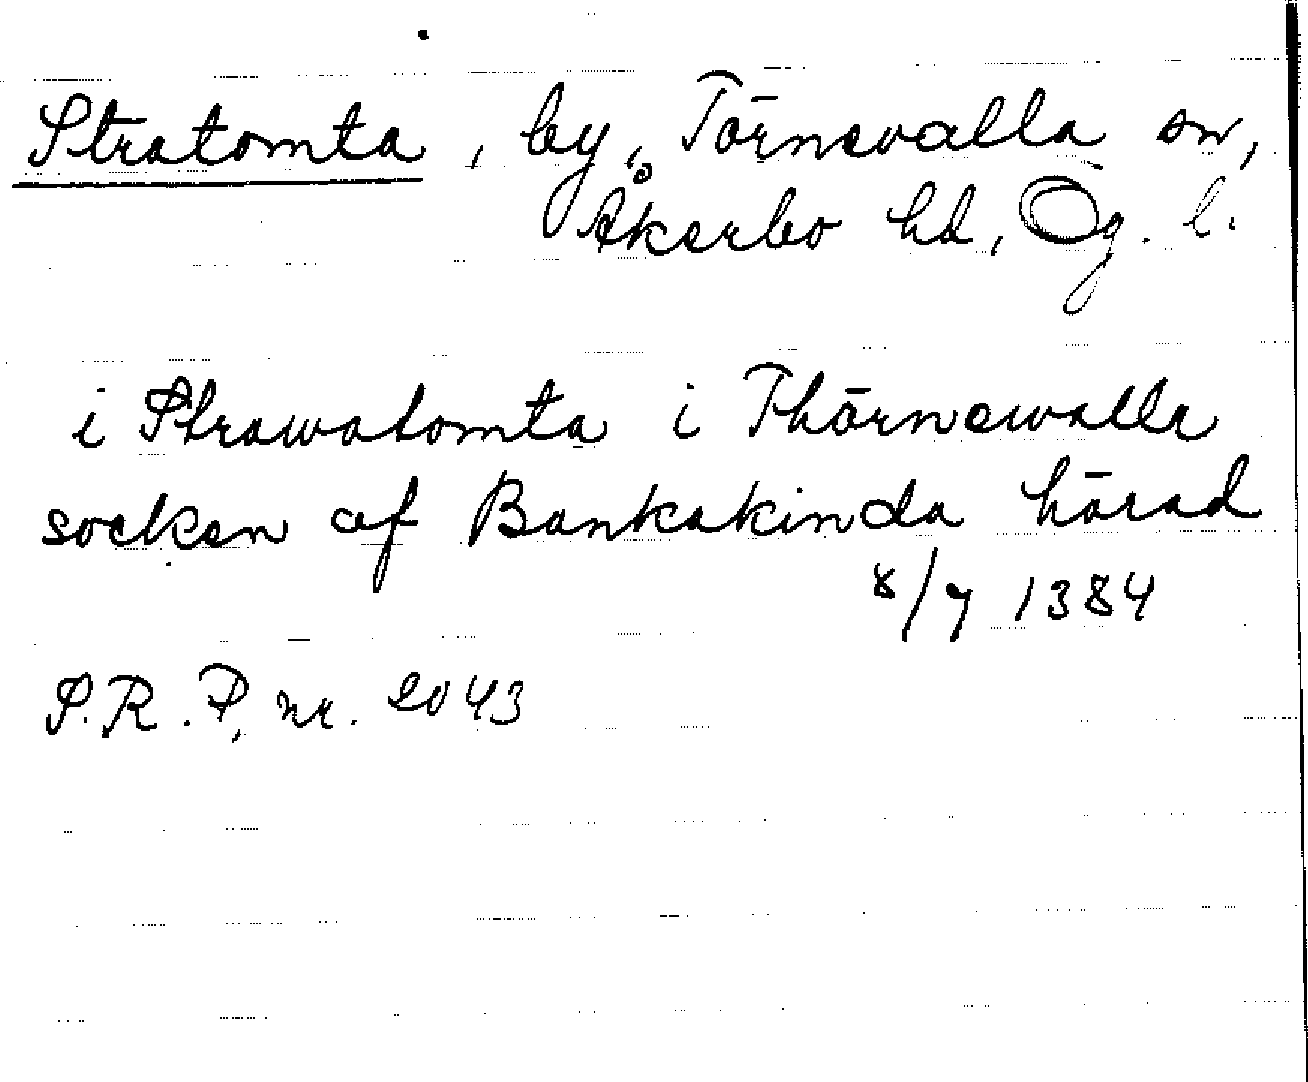 Stratomta, by, Törnevalla sn,
Åkerbo hd, Ög. l.
i Strawatomta i Thörnewalla
socken af Bankakinda härad
8/7 1384
S.R.P, nr. 2043